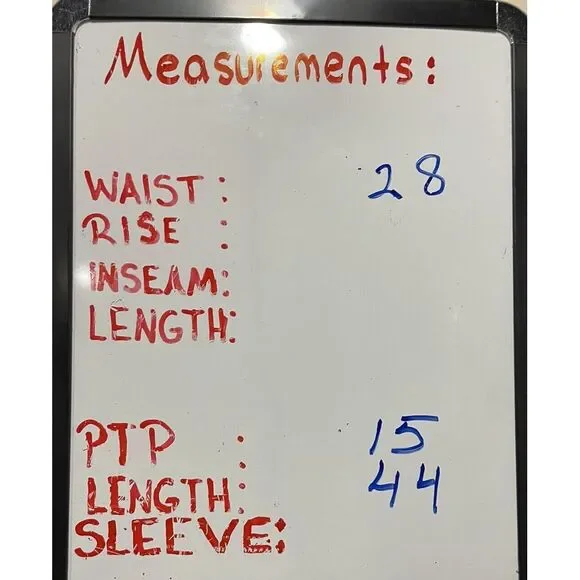 Measurements:
WAIST: 28
RISE :
INSEAM:
LENGTH:
PTP : 15
LENGTH: 44
SLEEVE: